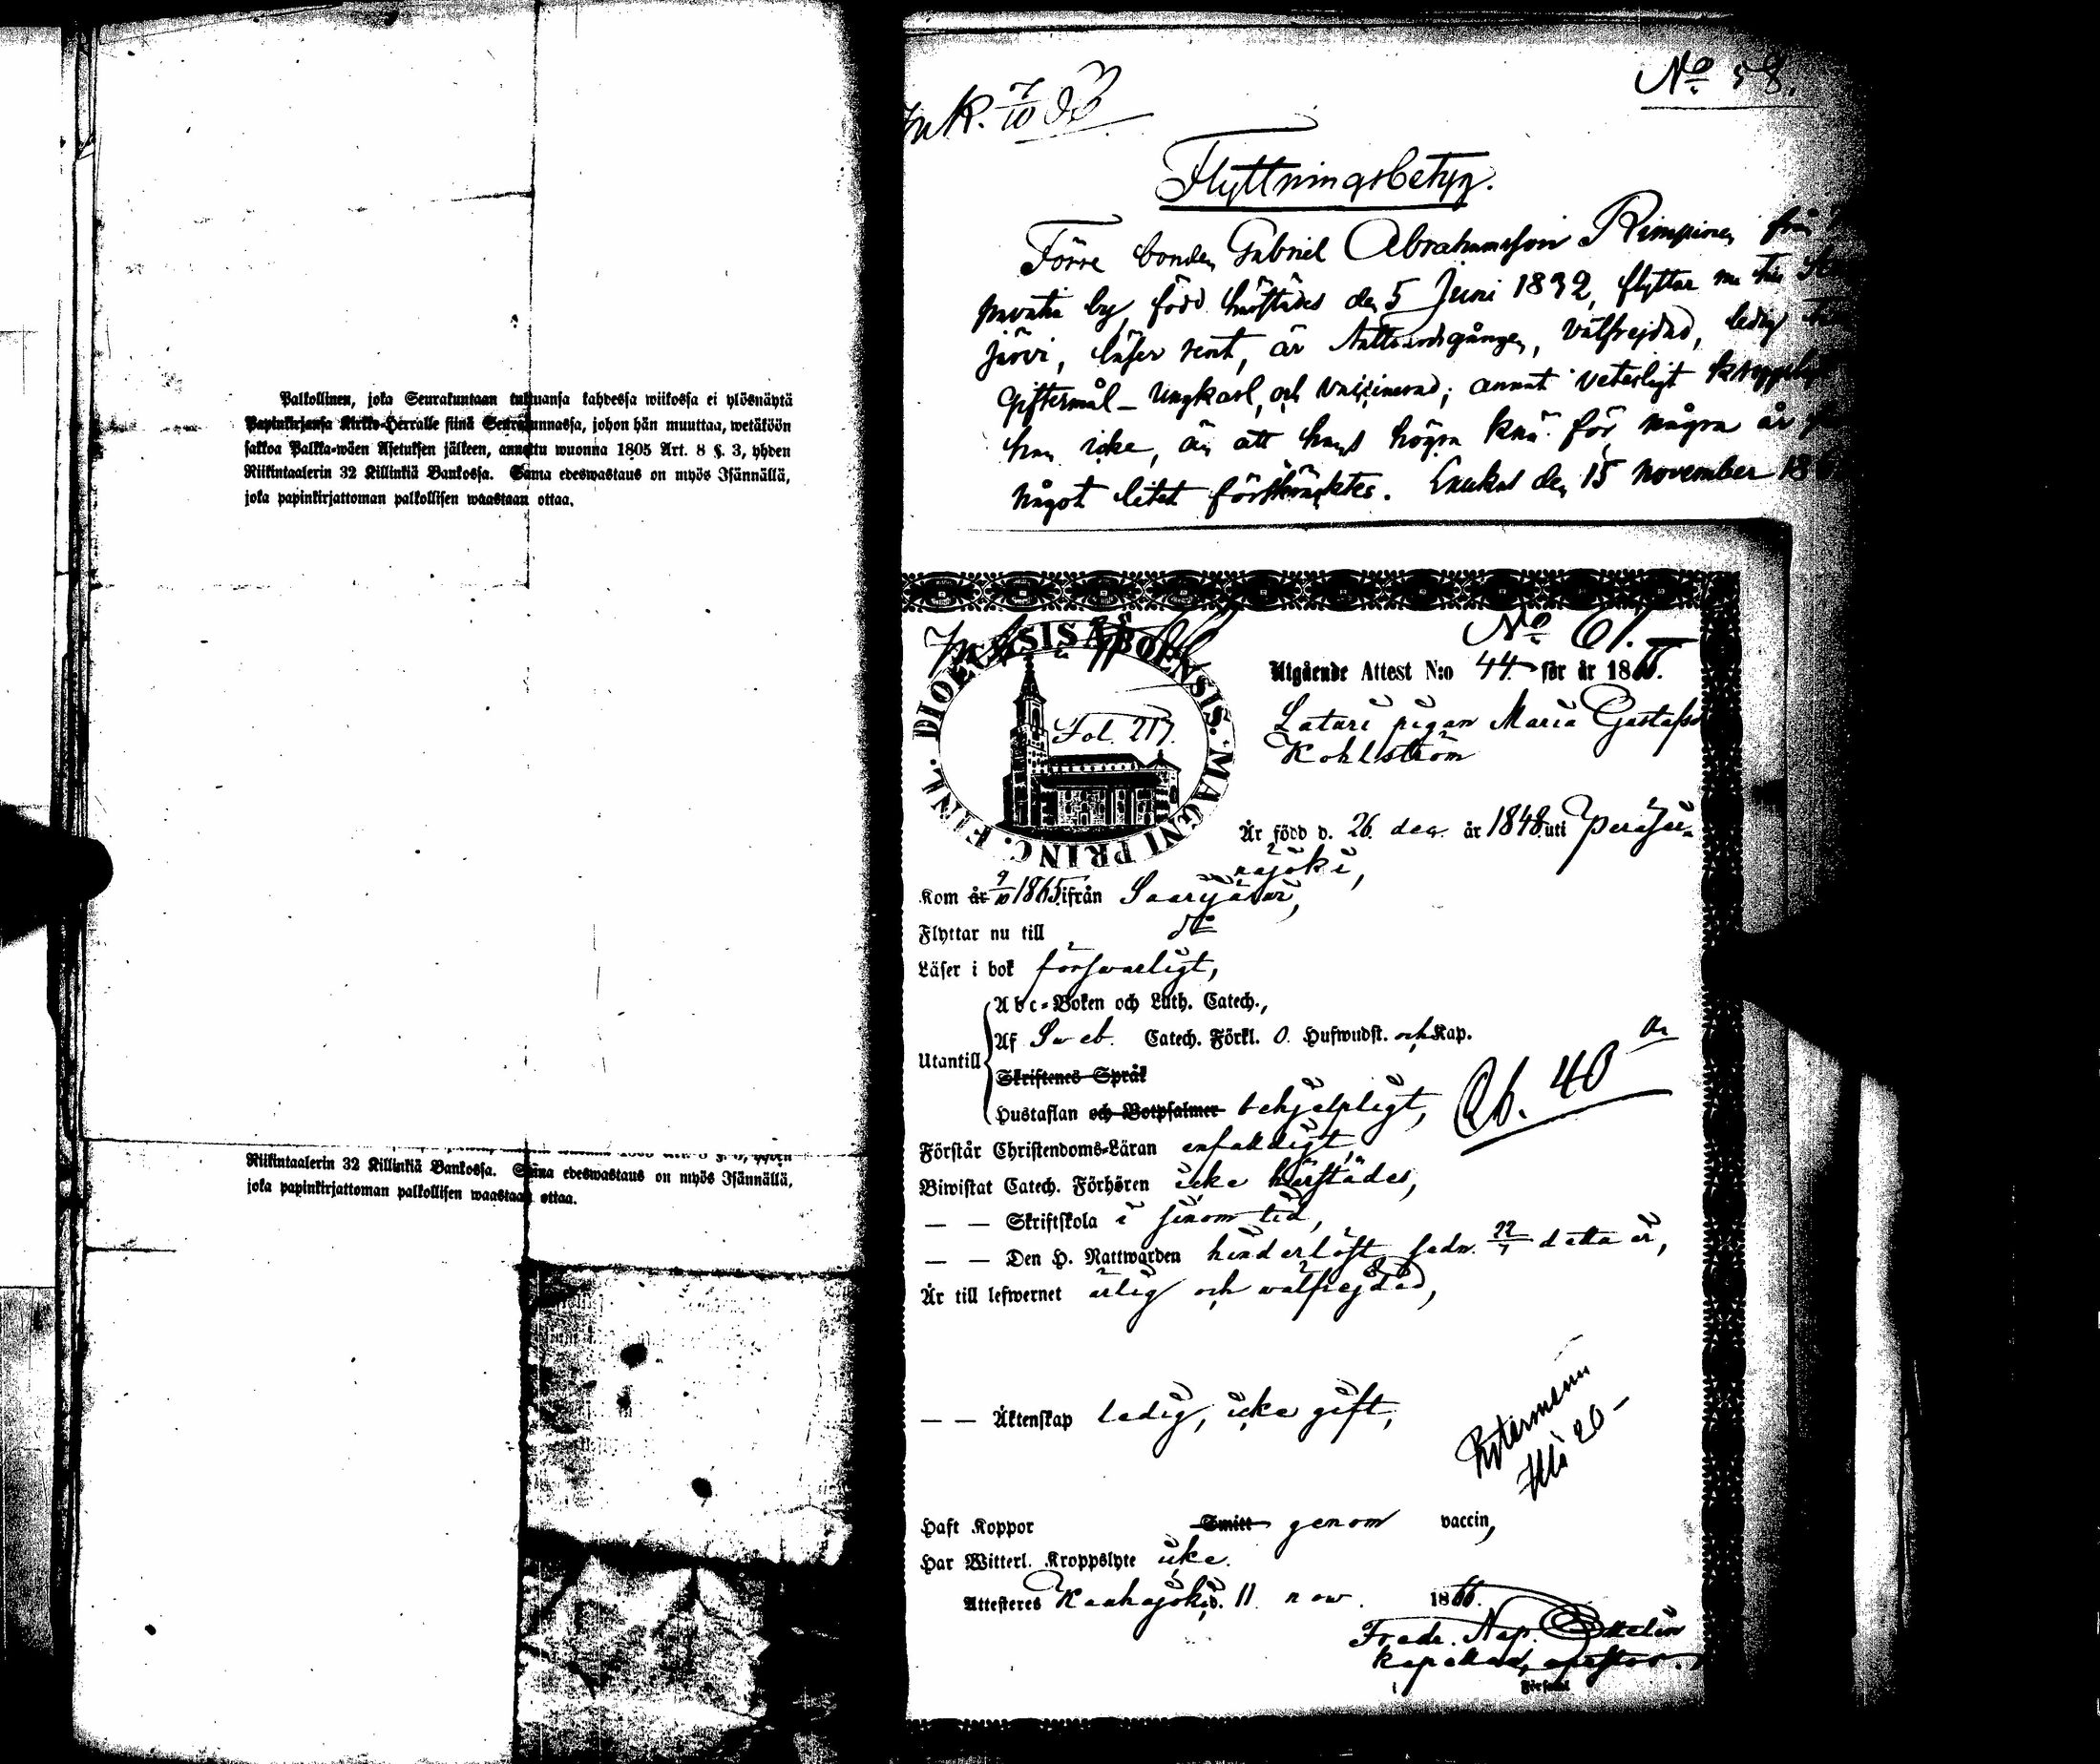 Palkollinen, joka Seurakuntaan tultuansa kahdessa wiikossa ei ylösnäytä
Papinkirjansa Kirkko-Herralle siinä Seurakunnassa, johon hän muuttaa, wetäköön
sakkoa Palkka-wäen Asetuksen jälkeen, annettu wuonna 1805 Art. 8 §. 3, yhden
Riikintaalerin 32 Killinkiä Bankossa. Sama edeswastaus on myös Isännällä,
joka papinkirjattoman palkollisen waastaan ottaa.
Riikintaalerin 32 Killinkiä Bankossa. Sama edeswastaus on myös Isännällä,
joka papinkirjattoman palkollisen waastaan ottaa.
No 58.
Ink.
Flyttningsbetyg.
Förre bonden Gabriel Abrahamsson Rimpinen från
by, född härstädes den 5 Juni 1832, flyttar nu till
järvi, läser rent, är Nattvardsgången, välfrejdad, ledig
Giftermål - ungkarl, och vaccinerad; annat veterligt
han icke, än att hans högra knä för några år
något litet förskräcktes. den 15 November 186
No 61.
DIOECESIS ABOENSIS. MAGNI PRINC. FINL.
Fol. 217.
Utgående Attest N:o 44 för år 1866.
Latari pigan Maria Gustafsd
Kohlström
Är född d. 26 dec. år 1848 uti Peräsei-
näjoki,
Kom år 9/10 1865 ifrån Saarijärvi,
Flyttar nu till do
Läser i bok försvarligt,
Utantill
Abc-Boken och Luth. Catech.,
Af Sveb. Catech. Förkl. 0. Hufwudst. och Kap.
Skriftenes Språk
Hustaflan och Botpsalmer behjelpligt,
Ob. 40
Förstår Christendoms-Läran enfaldigt,
Biwistat Catech. Förhören icke härstädes,
— — Skriftskola i sinom tid,
— — Den H. Nattwarden hinderlöst sedn. 22/7 detta år,
Är till lefwernet ärlig och välfrejdad,
— — Äktenskap ledig, icke gift,
Haft Koppor Smitt genom vaccin,
Har Witterl. Kroppslyte icke.
Attesteras Kauhajoki d. 11 nov. 1866.
Fredr. Nap.
Församl